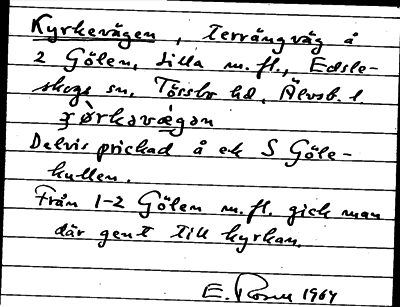 Kyrkevägen, terrängväg å
2 Gölen, Lilla m.fl., Edsle-
skogs sn, Tössbo hd, Älvsb. l
ɟørkəvægən
Delvis prickad å ek S Göle-
kullen.
Från 1-2 Gölen m.fl. gick man
där gent till kyrkan.
E. Rosen 1964